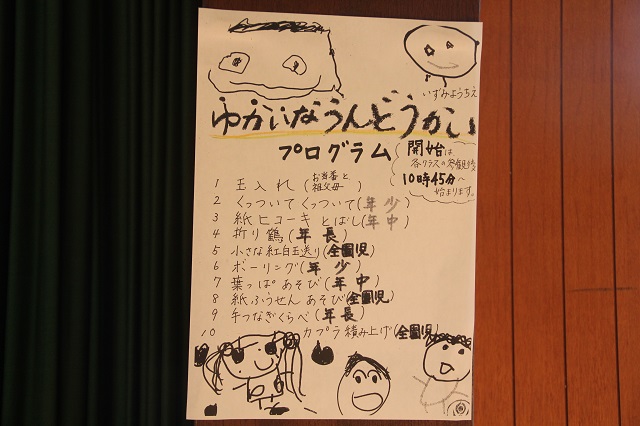 いずみようちえ
ゆかいなうんどうかい
プログラム
開始は
各クラスの参観後
10時45分〜
始まります。
1 玉入れ(お当番と祖父母)
2 くっついてくっついて(年少)
3 紙ヒコーキとばし(年中)
4 折り鶴(年長)
5 小さな紅白玉送り(全園児)
6 ボーリング(年少)
7 葉っぱあそび(年中)
8 紙ふうせんあそび(全園児)
9 手つなぎくらべ(年長)
10 カプラ積み上げ(全園児)